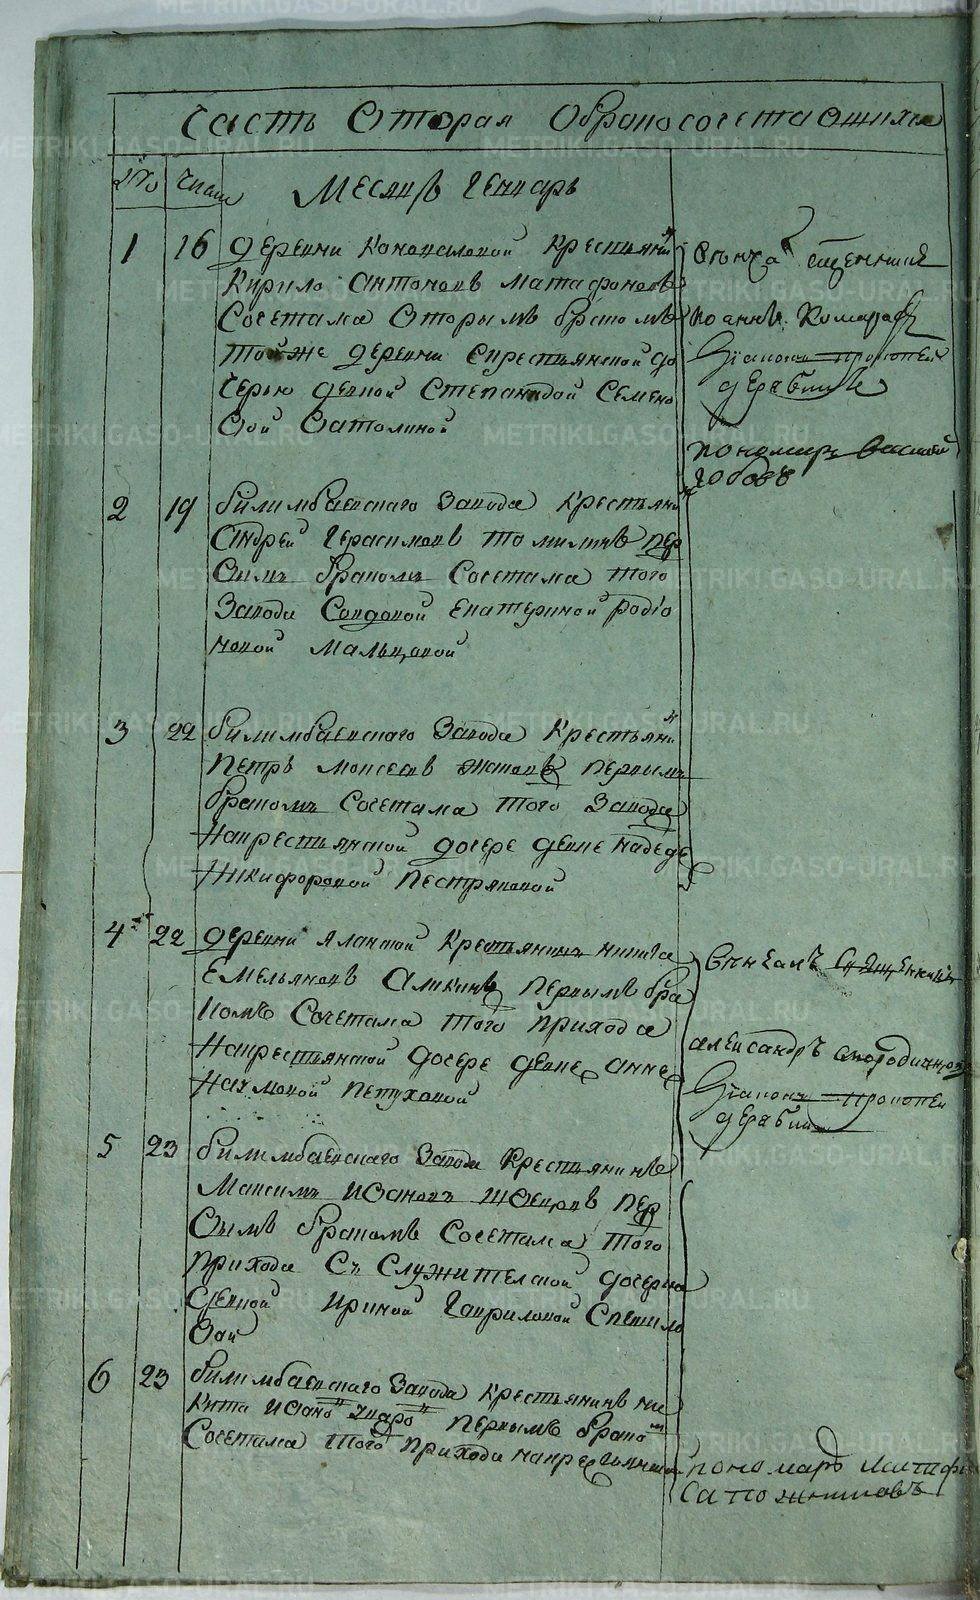 Часть Вторая О бракосочетавшихся
№ Числа Месяцъ Генварь
1 16 деревни Коноваловой крестьянинъ
Кирило Антоновъ Матафоновъ
Сочетался Вторымъ бракомъ
той же деревни скрестьянской до
черью девкой Степанидой Семено
вой Ватолиной
Венчал Священникъ
Иоаннъ
Дiаконъ Прокопей
дерябинъ
пономарь Василей
2 19 билимбаевскаго Завода крестьянинъ
Андрей Герасимовъ Томилинъ пер
вымъ бракомъ Сочетался того
Завода Совдовой Екатериной Родiо
новой Мальцовой
3 22 билимбаевскаго Завода Крестьянинъ
Петръ Моисеевъ первымъ
бракомъ Сочетался того Завода
Накрестьянской дочере девке Надежде
Никифоровой Пестряковой
4 22 деревни Крестьянинъ Никита
Емельяновъ Аликинъ Первымъ бра
комъ Сочетался того прихода
Накрестьянской дочере девке Анне
Наумовой Петуховой
Венчалъ Священникъ
александръ
Дiаконъ Прокопей
дерябинъ
5 23 билимбаевскаго Завода Крестьянинъ
Максимъ Ивановъ Швецовъ пер
вымъ бракомъ Сочетался того
прихода Съ Служителской дочерью
девкой Ириной Гавриловой Спешило
вой
6 23 билимбаевскаго Завода Крестьянинъ Ни
кита Ивановъ первымъ бракомъ
Сочетался того прихода накрестьянской
пономарь
Сапожниковъ
METRIKI.GASO-URAL.RU